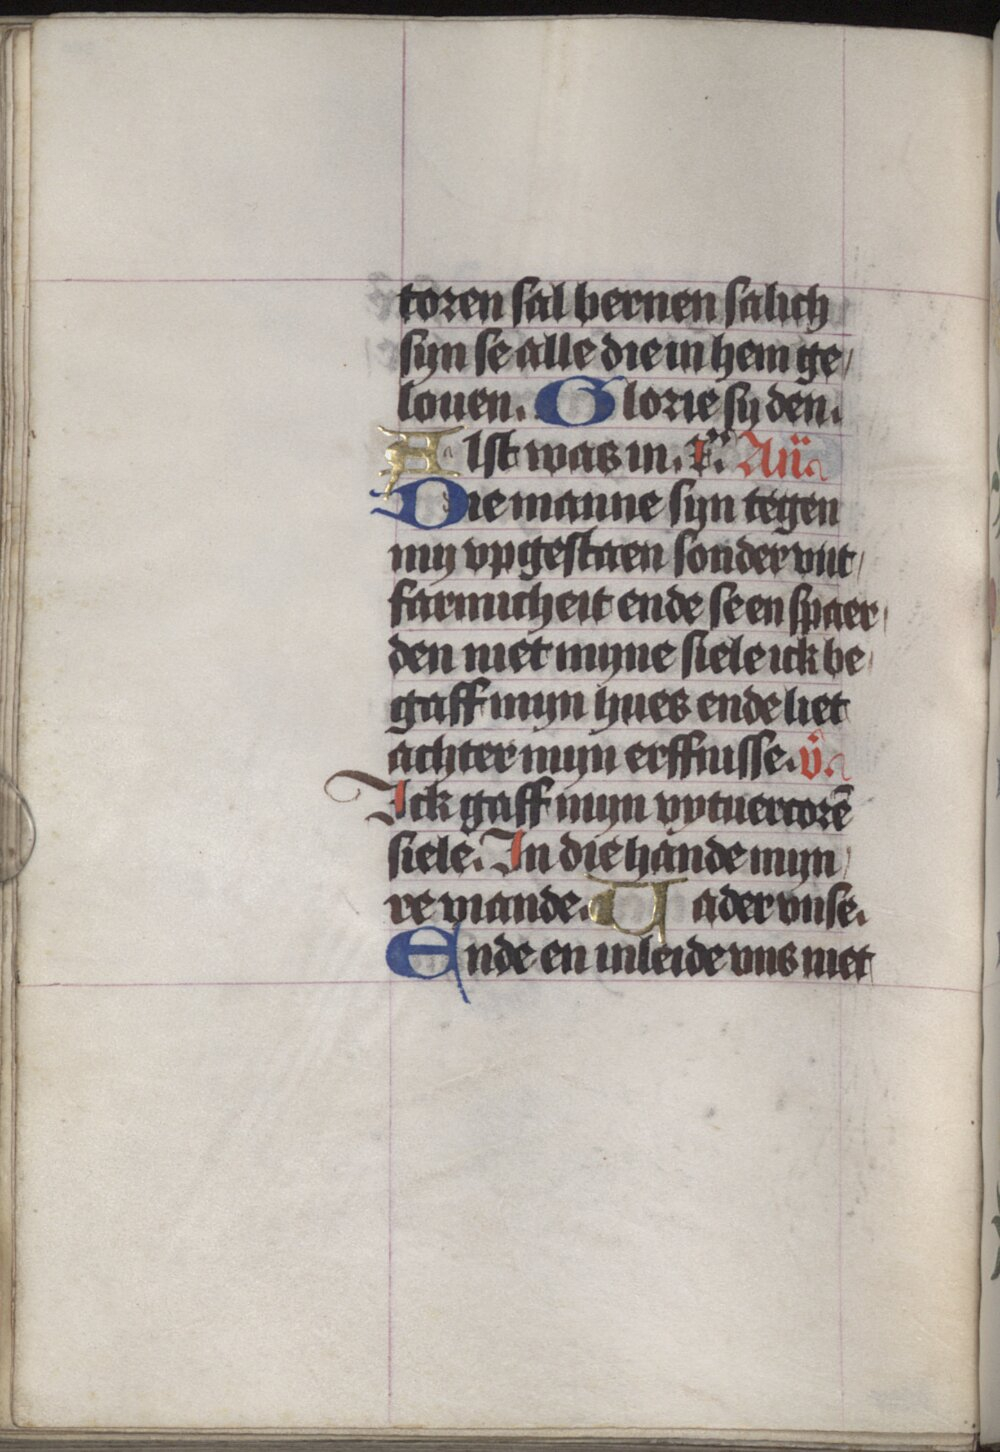 toren sal bernen salich
syn se alle die in hem ge/
louen. Glorie sy den.
Alst was in. P̈. An̄
Die manne syn tegen
my vpgestaen sonder vnt/
farmicheit ende se en spaer/
den niet myne siele ick be/
gaff myn hues ende liet
achter myn erffnisse. v̊.
Ick gaff myn vytuercorē
siele. In die hande myn/
re viande. Uader vnse.
Ende en inleide vns niet